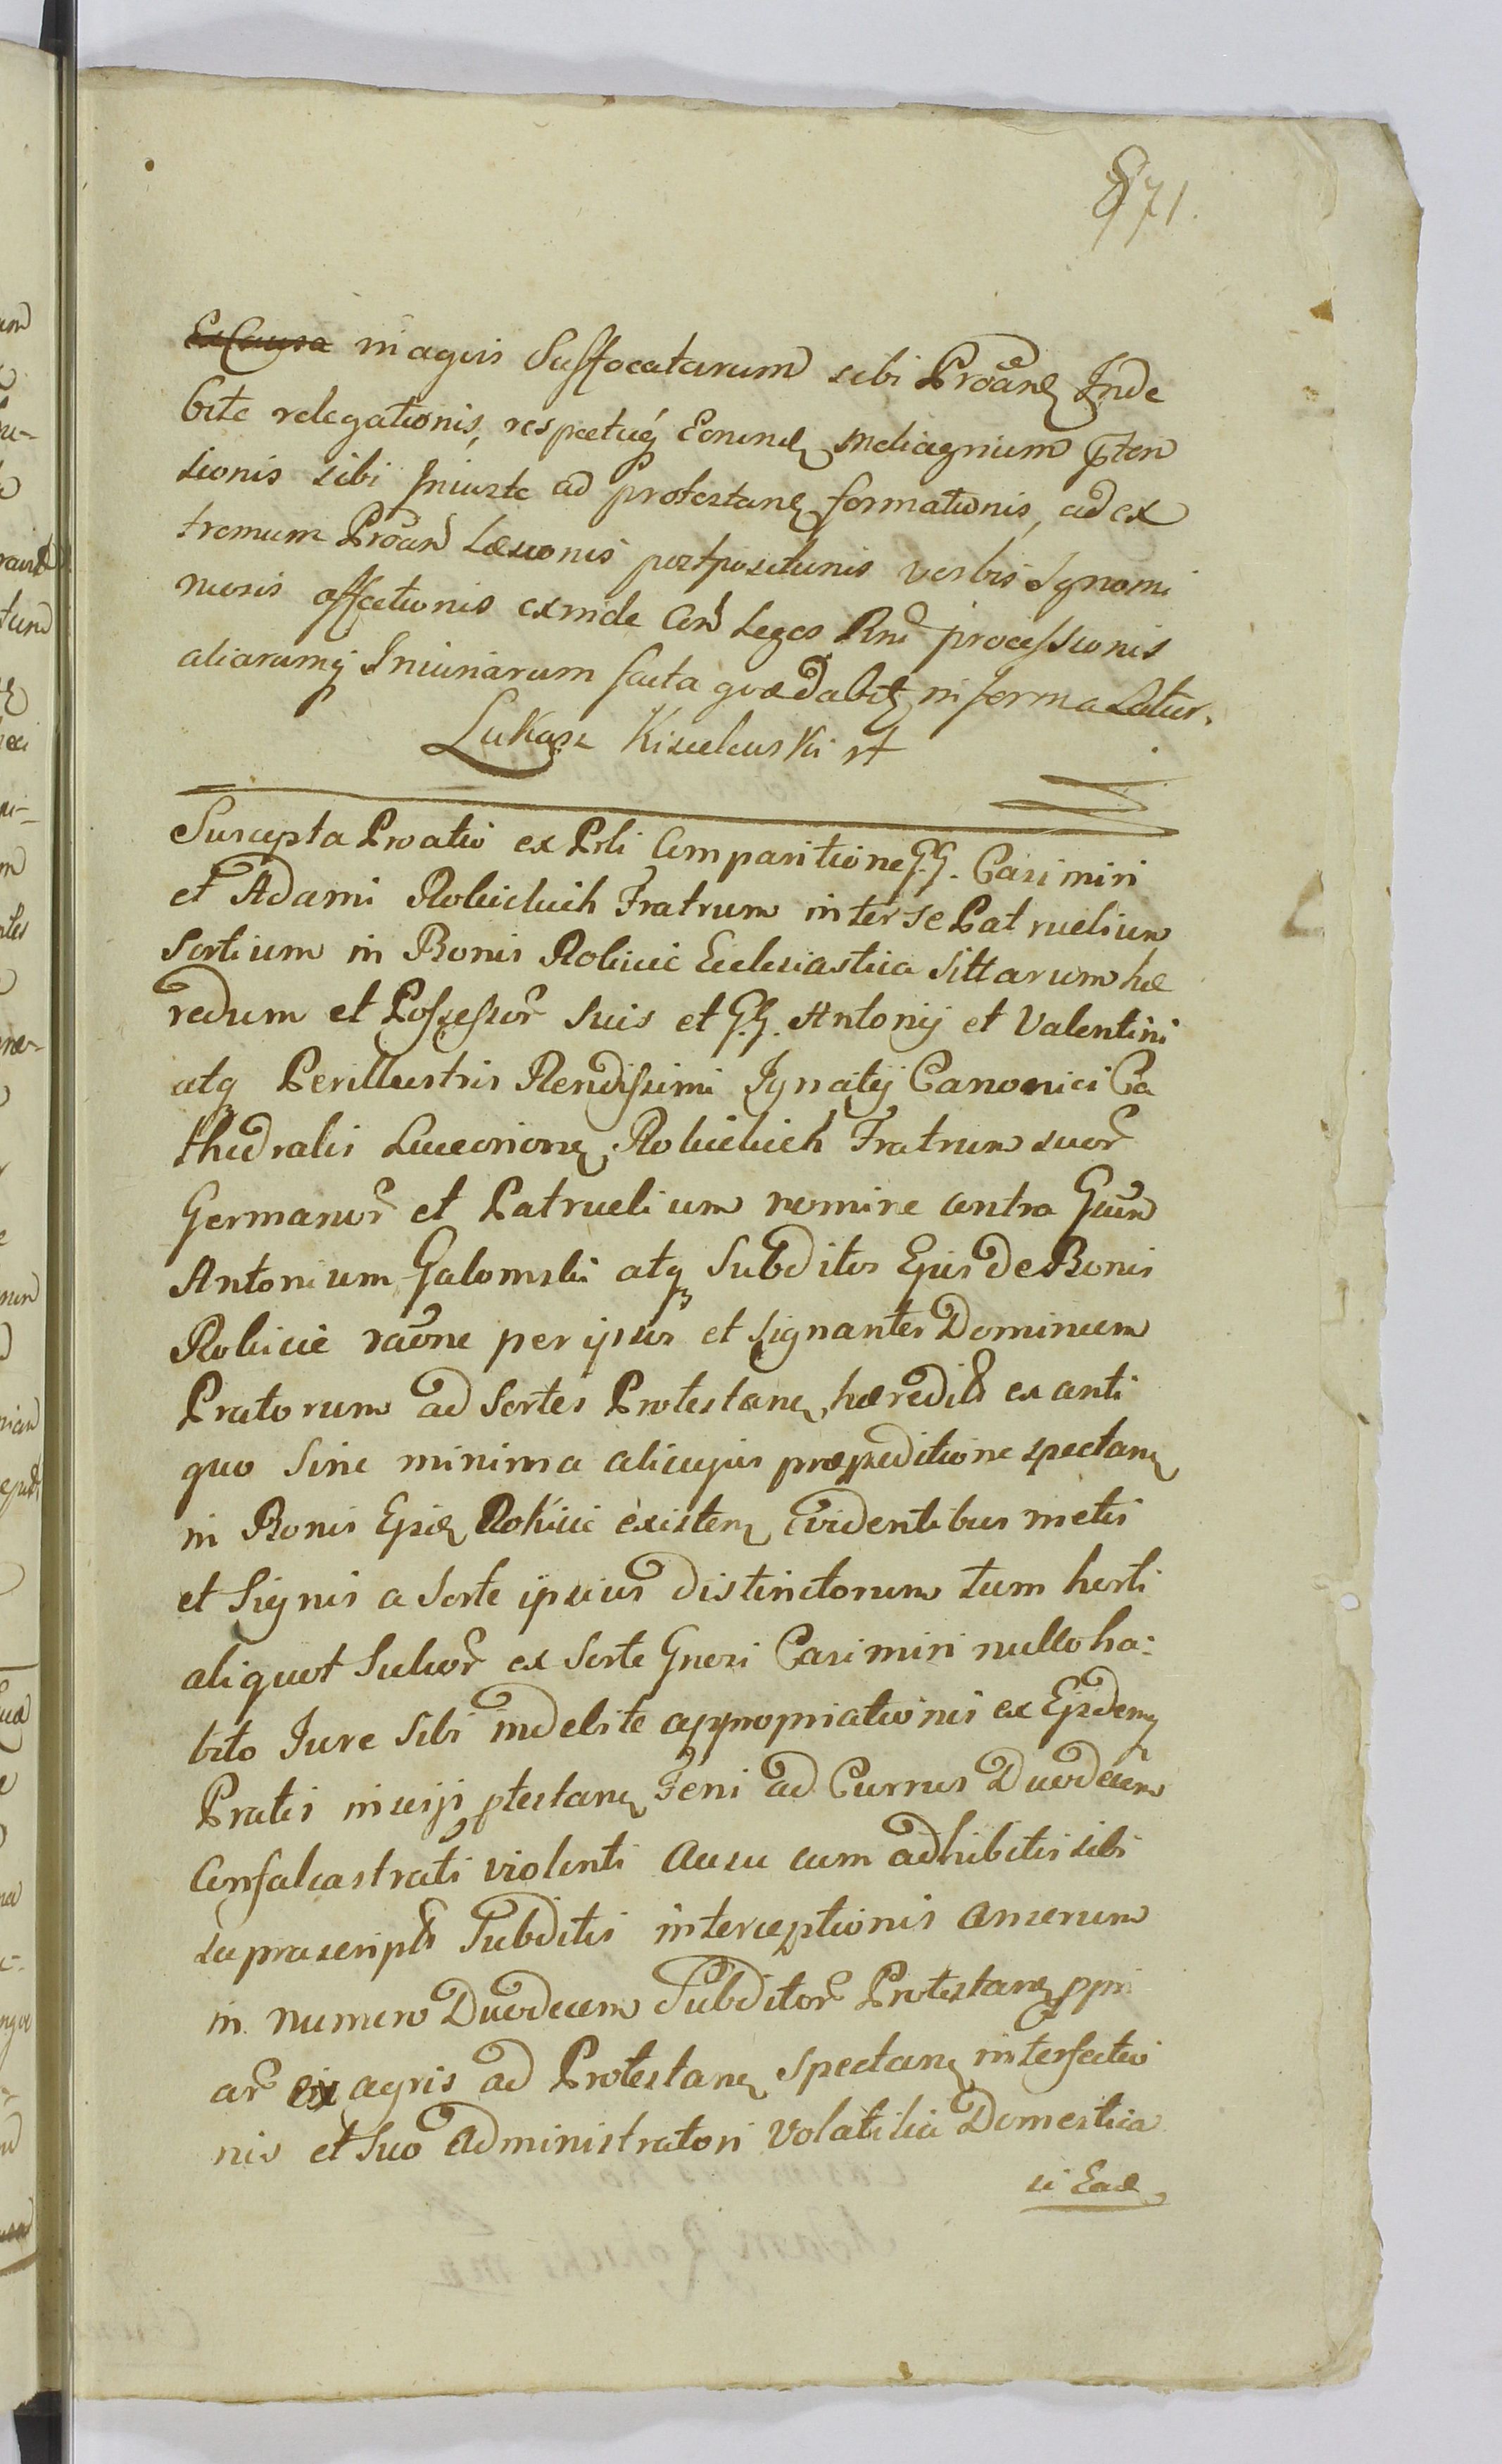 871.
Ex Causa in aqvis Suffocatarum sibi Proane Inde
bite relegationis, respectuq Eorund meliagnium pten
sionis sibi Iniuste ad protestane formationis, ad ex
tremum Proan Læsionis postpositionis verbis Ignomi
niosis affectionis exinde Con Leges Rni processionis
aliarumq Iniuriarum facta qvæ dabit in forma Latior.
Lukasz
Suscepta Proatio ex Prli Comparitione G.G. Casimiri
et Adami Rokickich Fratrum inter se Patruelium
Sortium in Bonis Rokicie Ecclesiastica Sittarum hæ
redum et Possessor Suis et G.G. Antonij et Valentini
atq Perillustris Rendissimi Ignatij Canonici Ca
thedralis Luceorien Rokickich Fratrum suor
Germanor et Patruelium nomine contra Gnum
Antonium Galomski atq Subditos Ejus de Bonis
Rokicie raone per ipsos et Signanter Dominum
Pratorum ad Sortes Protestane hæredit ex anti
quo Sine minima alicujus præpeditione spectane
in Bonis Ejsd Rokicie existen Evidentibus metis
et Signis a Sorte ipsius distinctorum tum horti
aliquot Sulcor ex Sorte Gnosi Casimiri nullo ha:
bito Iure Sibi indebite appropriationis ex Ejsdem
Pratis in usij ptestane Feni ad Currus Duodecim
Confalcastrati violenti ausu cum adhibitis sibi
suprascript Subditis interceptionis Anserum
in numero Duodecem Subditor Protestane ppri
ar ex agris ad Protestane Spectane interfectio
nis et Suo Administratori Volatilia Domestica
si Ead